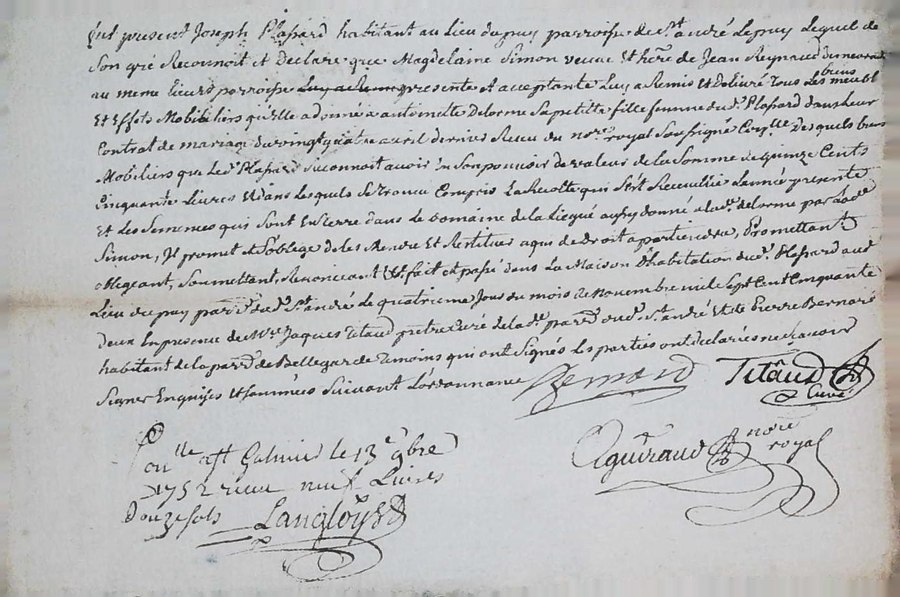 fut present Joseph Plasard habitant au Lieu du puy parroisse de st andré Lepuy Lequel de
Son gré Reconnoit et Declare que Magdelaine Simon veuve et here de Jean Reynaud demeurant
au meme Lieu & parroisse presente et acceptante Luy a Remis et Delivré Tous Les biens meubl
Et Effets Mobiliers quelle a donné a antoinette Delorme Sa petite fille femme dud. Plasard dans leur
Contrat de mariage du vingt quatre avril dernier Receu du nore royal Soussigné Desquels biens
Mobiliers que Led. Plasard reconnoit avoir en Son pouvoir de valeur de la Somme de quinze Cents
Cinquante Livres et dans Lesquels Se trouve Compris La Recolte qui S'est Recueillie L'année presente
Et Les Semences qui Sont En terre dans le Domaine de la Liegue aussy donné a lad. delorme par Lad.
Simon, Il promet et S'oblige de les Rendre Et Restituer a qui de droit apartiendra, Promettant
obligeant, Soumettant, Renonceant &t fait et passé dans La Maison D'habitation dud. Plasard aud.
Lieu du puy parrs de st andré Le quatrieme Jour du mois de Novembre mil Sept Cent Cinquante
deux En presence de Mre Jaques Titaud pretre Curé de lad. parrs dud. st andré Et de Pierre Bernard
habitant de la parrs de Bellegarde Temoins qui ont Signés Les parties ont declarées ne Scavoir
Signer Enquises et Sommées Suivant L'ordonnance
Bernard Titaud
Curé
Aguiraud nore
royal
Conlle a st Galmier le 13e 9bre
1752 receu neuf Livres
Douze Sols Langloys